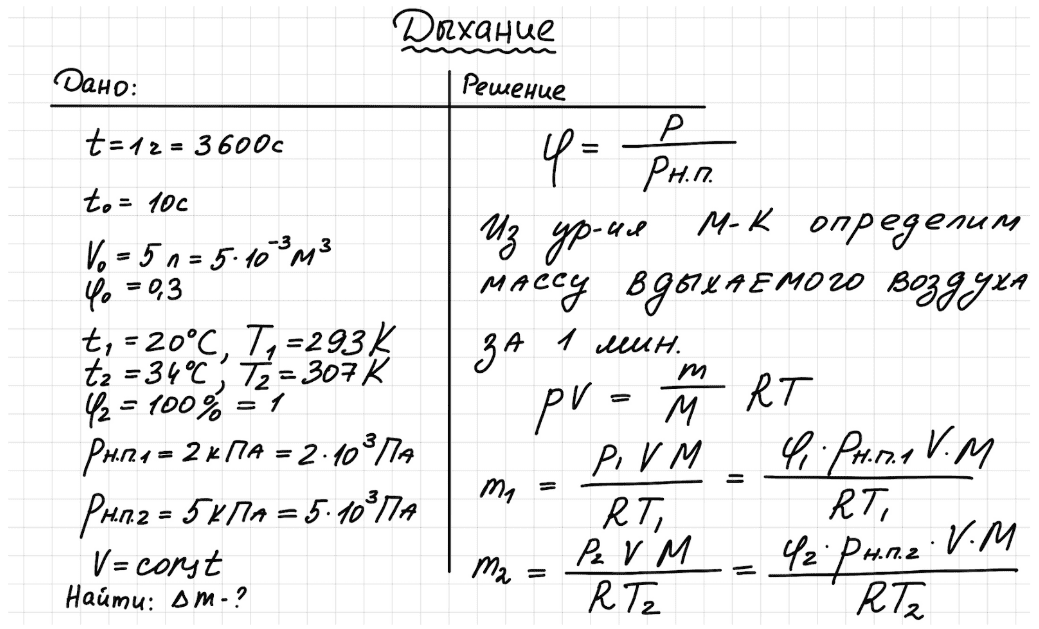 Дыхание
Дано:
t = 1 ч = 3600 с
t₀ = 10 с
V₀ = 5 л = 5·10⁻³ м³
φ₀ = 0,3
t₁ = 20°C, T₁ = 293 K
t₂ = 34°C, T₂ = 307 K
φ₂ = 100% = 1
Pн.п.1 = 2 кПа = 2·10³ Па
Pн.п.2 = 5 кПа = 5·10³ Па
V = const
Найти: Δm - ?
Решение
φ = P / Pн.п.
Из ур-ия М-К определим
массу вдыхаемого воздуха
за 1 мин.
pV = m/M RT
m₁ = P₁ V M / RT₁ = φ₁ · Pн.п.1 V · M / RT₁
m₂ = P₂ V M / RT₂ = φ₂ · Pн.п.2 · V · M / RT₂